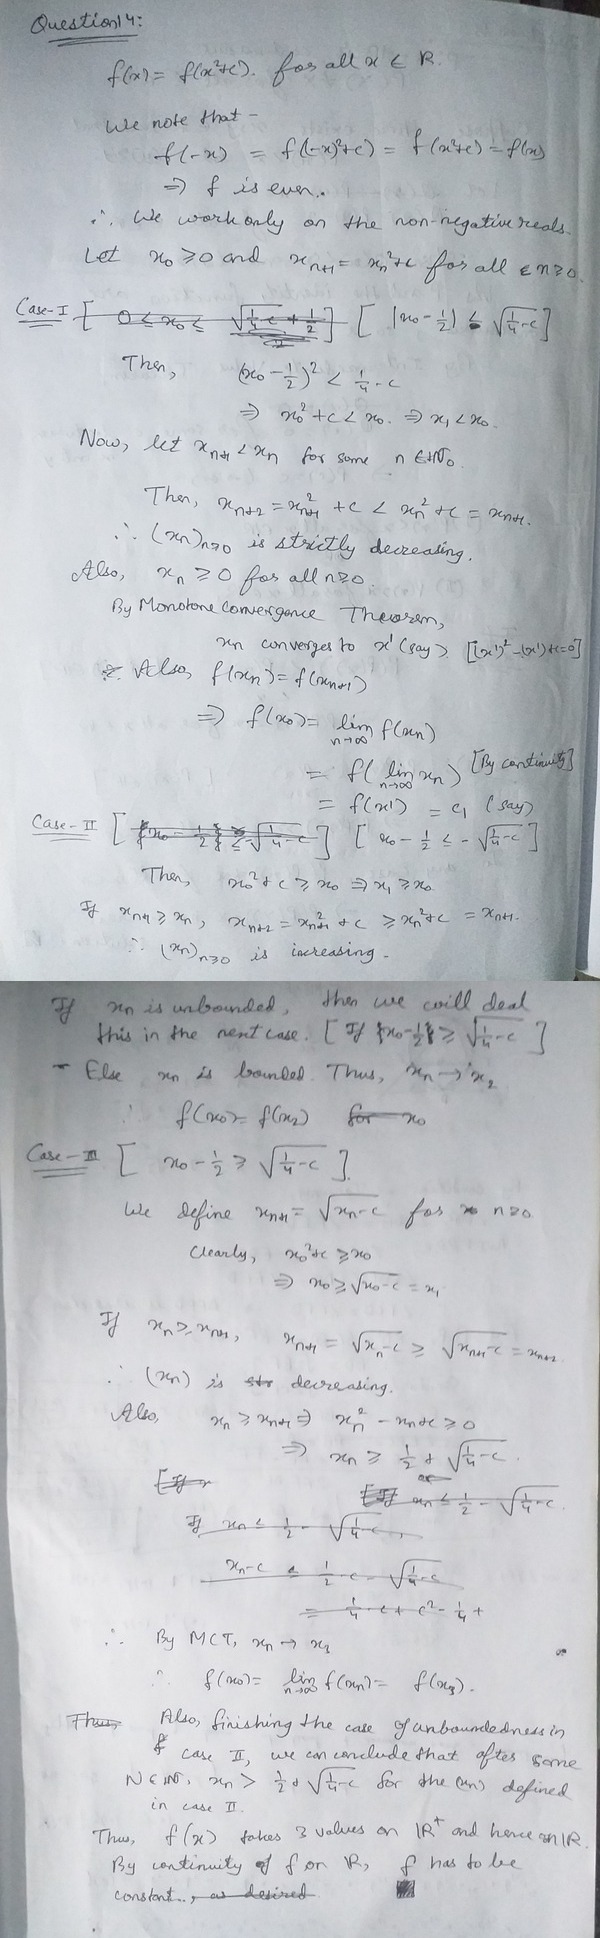 Question 14:
f(x) = f(x²+c). for all x ∈ R.
We note that -
f(-x) = f((-x)²+c) = f(x²+c) = f(x)
⇒ f is even.
∴ We work only on the non-negative reals.
Let x₀ ≥ 0 and xₙ₊₁ = xₙ²+c for all n ≥ 0.
Case-I [ 0 ≤ x₀ ≤ √(1/4-c) + 1/2 ] [ |x₀ - 1/2| ≤ √(1/4-c) ]
Then, (x₀ - 1/2)² < 1/4 - c
⇒ x₀² + c < x₀. ⇒ x₁ < x₀.
Now, let xₙ₊₁ < xₙ for some n ∈ ℕ₀.
Then, xₙ₊₂ = xₙ₊₁² + c < xₙ² + c = xₙ₊₁.
∴ (xₙ)ₙ≥₀ is strictly decreasing.
Also, xₙ ≥ 0 for all n ≥ 0.
By Monotone Convergence Theorem,
xₙ converges to x' (say). [(x')² - (x') + c = 0]
Also, f(xₙ) = f(xₙ₊₁)
⇒ f(x₀) = lim n→∞ f(xₙ)
= f(lim n→∞ xₙ) [By continuity]
= f(x') = c₁ (say)
Case-II [ {x₀ - 1/2} ≤ -√(1/4-c) ] [ x₀ - 1/2 ≤ -√(1/4-c) ]
Then, x₀² + c ≥ x₀ ⇒ x₁ ≥ x₀
If xₙ₊₁ ≥ xₙ, xₙ₊₂ = xₙ₊₁² + c ≥ xₙ² + c = xₙ₊₁.
∴ (xₙ)ₙ≥₀ is increasing.
If xₙ is unbounded, then we will deal
this in the next case. [ If {x₀ - 1/2} ≥ √(1/4-c) ]
- Else xₙ is bounded. Thus, xₙ → x₂
∴ f(x₀) = f(x₂) for x₀
Case-III [ x₀ - 1/2 ≥ √(1/4-c) ].
We define xₙ₊₁ = √(xₙ-c) for n ≥ 0
Clearly, x₀² + c ≥ x₀
⇒ x₀ ≥ √(x₀-c) = x₁
If xₙ ≥ xₙ₊₁, xₙ₊₁ = √(xₙ-c) ≥ √(xₙ₊₁-c) = xₙ₊₂.
∴ (xₙ) is decreasing.
Also, xₙ ≥ xₙ₊₁ ⇒ xₙ² - xₙ + c ≥ 0
⇒ xₙ ≥ 1/2 + √(1/4-c).
[If xₙ ≤ 1/2 - √(1/4-c).
If xₙ ≤ 1/2 - √(1/4-c),
xₙ-c ≤ 1/2 - c - √(1/4-c)
= 1/4 - c + c² - 1/4 +
∴ By MCT, xₙ → x₃
∴ f(x₀) = lim n→∞ f(xₙ) = f(x₃).
Thus, Also, finishing the case of unboundedness in
case II, we can conclude that after some
N ∈ ℕ, xₙ > 1/2 + √(1/4-c) for the (xₙ) defined
in case II.
Thus, f(x) takes 3 values on ℝ⁺ and hence on ℝ.
By continuity of f on ℝ, f has to be
constant., as desired